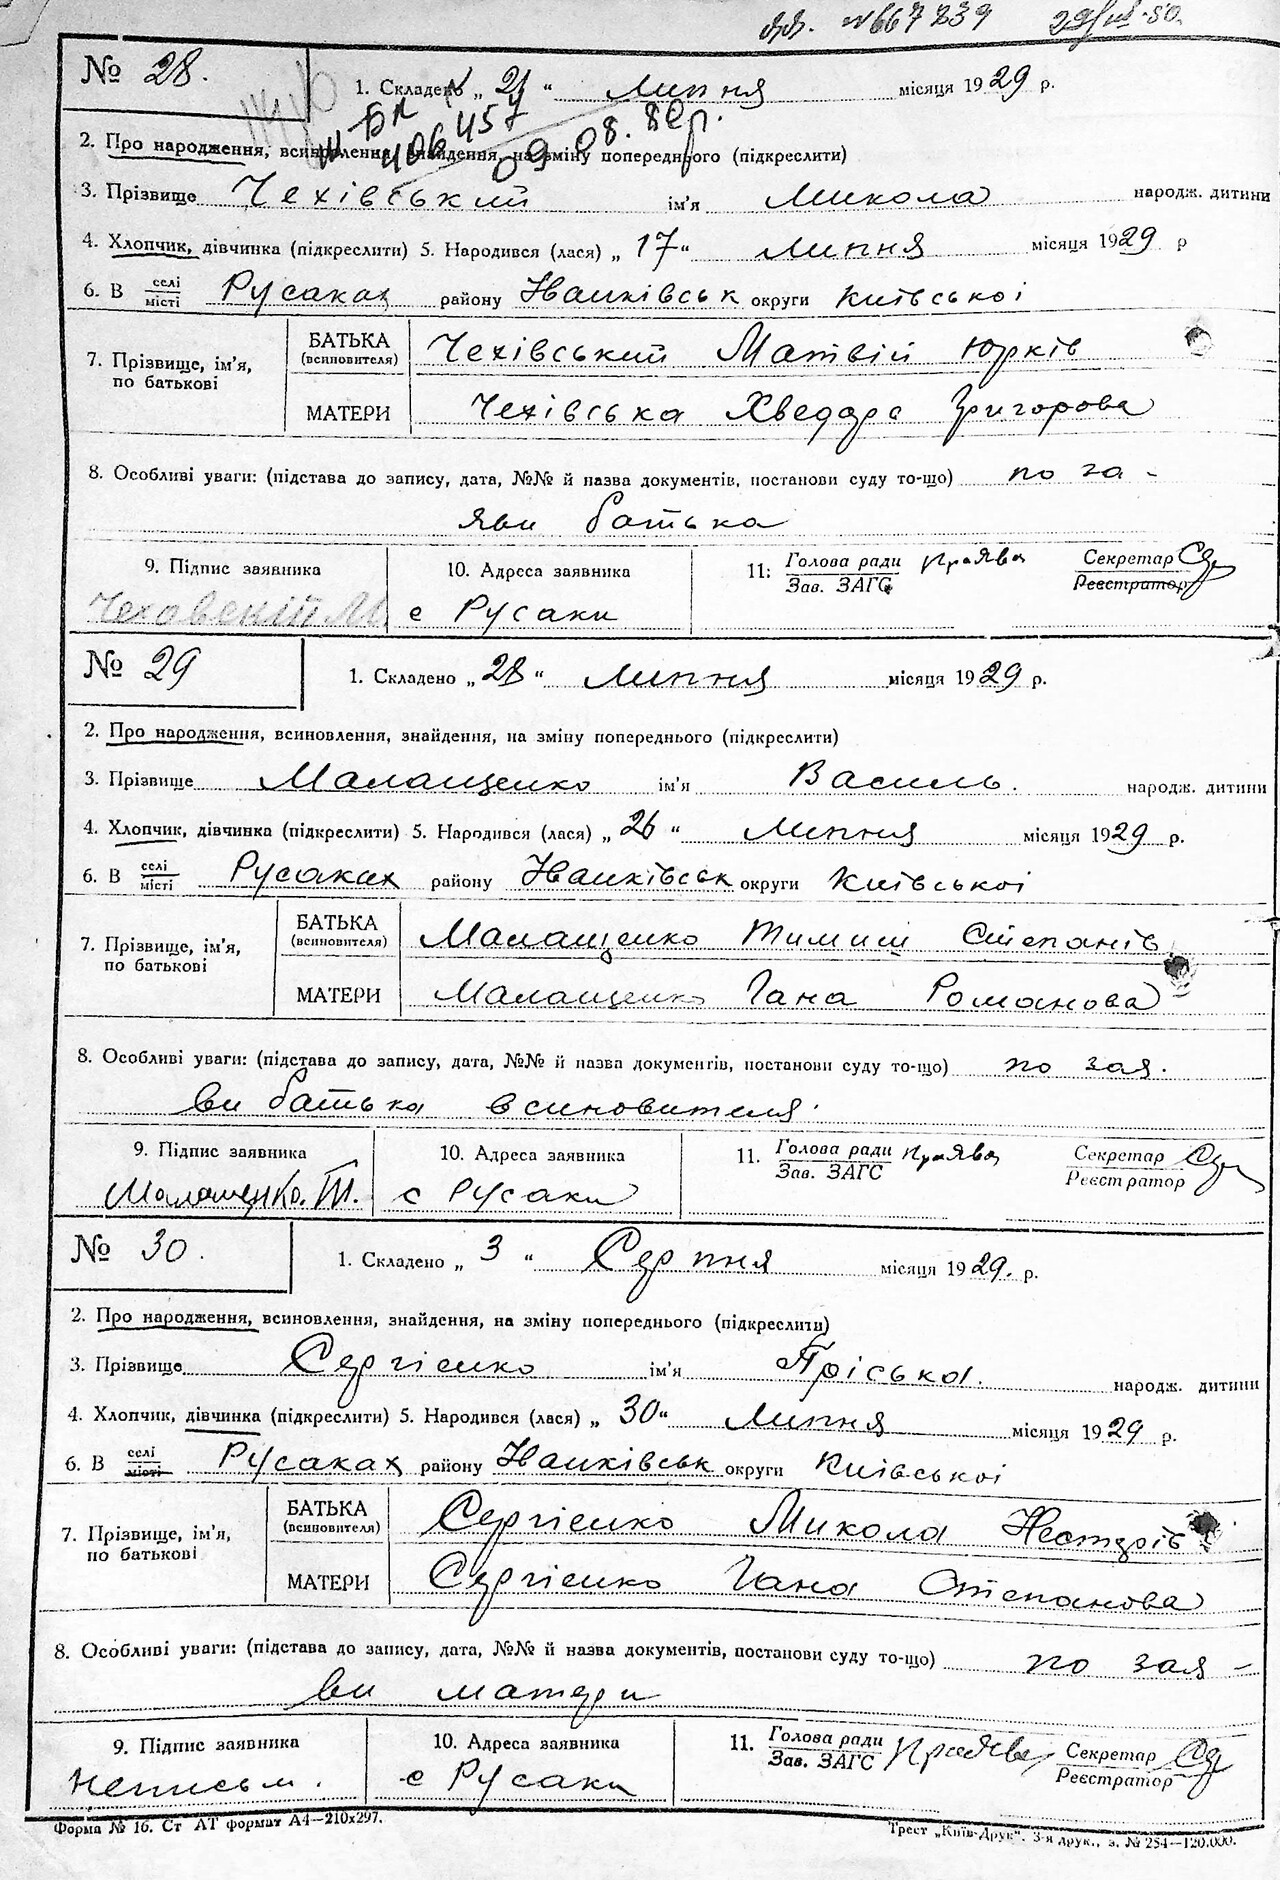 №667239 29/VIII-80.
№ 28.
1. Складено „ 21 “ Липня місяця 1929 р.
406457
09.08.80р.
2. Про народження, всиновлення, знайдення, на зміну попереднього (підкреслити)
3. Прізвище Чехівський ім'я Микола народж. дитини
4. Хлопчик, дівчинка (підкреслити) 5. Народився (лася) „ 17 “ Липня місяця 1929 р
6. В селі/місті Русаках району Іванківськ округи Київської
7. Прізвище, ім'я, по батькові
БАТЬКА (всиновителя) Чехівський Матвій Юрків
МАТЕРИ Чехівська Хведора Григорова
8. Особливі уваги: (підстава до запису, дата, №№ й назва документів, постанови суду то-що) по за-
яви батька
9. Підпис заявника 10. Адреса заявника 11: Голова ради Секретар
Зав. ЗАГС Реєстратор
Чеховский М. с Русаки
№ 29
1. Складено „ 28 “ Липня місяця 1929 р.
2. Про народження, всиновлення, знайдення, на зміну попереднього (підкреслити)
3. Прізвище Малащенко ім'я Василь. народж. дитини
4. Хлопчик, дівчинка (підкреслити) 5. Народився (лася) „ 26 “ Липня місяця 1929 р.
6. В селі/місті Русаках району Іванківськ округи Київської
7. Прізвище, ім'я, по батькові
БАТЬКА (всиновителя) Малащенко Тимиш Степанів
МАТЕРИ Малащенко Гана Романова
8. Особливі уваги: (підстава до запису, дата, №№ й назва документів, постанови суду то-що) по зая.
ви батька всиновителя.
9. Підпис заявника 10. Адреса заявника 11. Голова ради Секретар
Зав. ЗАГС Реєстратор
Малащенко. Т. с Русаки
№ 30.
1. Складено „ 3 “ Серпня місяця 1929. р.
2. Про народження, всиновлення, знайдення, на зміну попереднього (підкреслити)
3. Прізвище Сергієнко ім'я Пріська. народж. дитини
4. Хлопчик, дівчинка (підкреслити) 5. Народився (лася) „ 30 “ Липня місяця 1929 р.
6. В селі/місті Русаках району Іванківськ округи Київської
7. Прізвище, ім'я, по батькові
БАТЬКА (всиновителя) Сергієнко Микола Нестерів
МАТЕРИ Сергієнко Гана Степанова
8. Особливі уваги: (підстава до запису, дата, №№ й назва документів, постанови суду то-що) по зая-
ви матери
9. Підпис заявника 10. Адреса заявника 11. Голова ради Секретар
Зав. ЗАГС Реєстратор
неписьм. с Русаки
Форма № 16. Ст АТ формат А4—210х297. Трест „Київ-Друк“. 3-я друк., з. № 254—120.000.